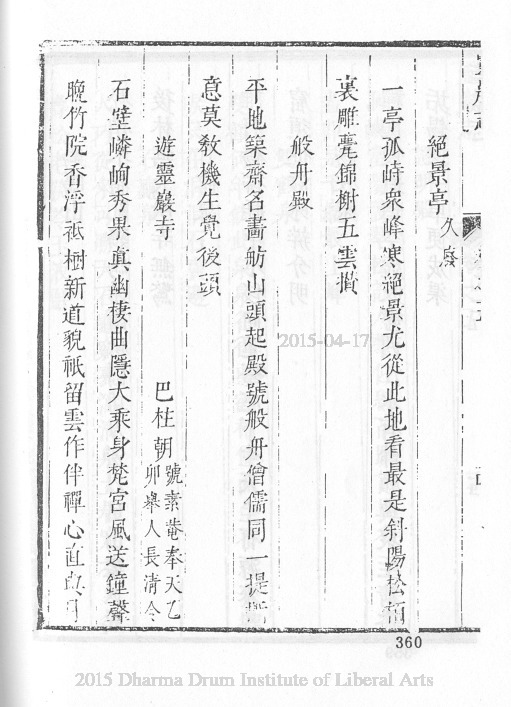 絕景亭 久廢
一亭孤峙衆峰寒絕景尤從此地看最是斜陽松
裏雕甍錦樹五雲攢
般舟殿
平地築齋名畵舫山頭起殿號般舟僧儒同一提
意莫教機生覺後頭
遊靈巖寺
巴柱朝 號素菴奉天乙
卯舉人長清令
石壁嶙峋秀果眞幽棲曲隱大乘身梵宮風送鐘聲
晚竹院香浮祗樹新道貌祇留雲作伴禪心直
360
2015-04-17
2015 Dharma Drum Institute of Liberal Arts